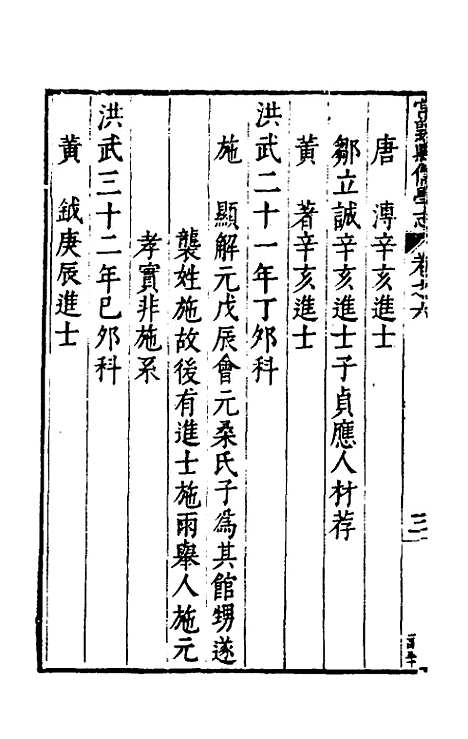 常熟縣儒學志 卷之六
三
唐 溥辛亥進士
鄒立誠辛亥進士子貞應人材荐
黃 著辛亥進士
洪武二十一年丁夘科
施 顯解元戊辰會元桑氏子為其館甥遂
襲姓施故後有進士施雨舉人施元
孝實非施系
洪武三十二年巳夘科
黃 鉞庚辰進士